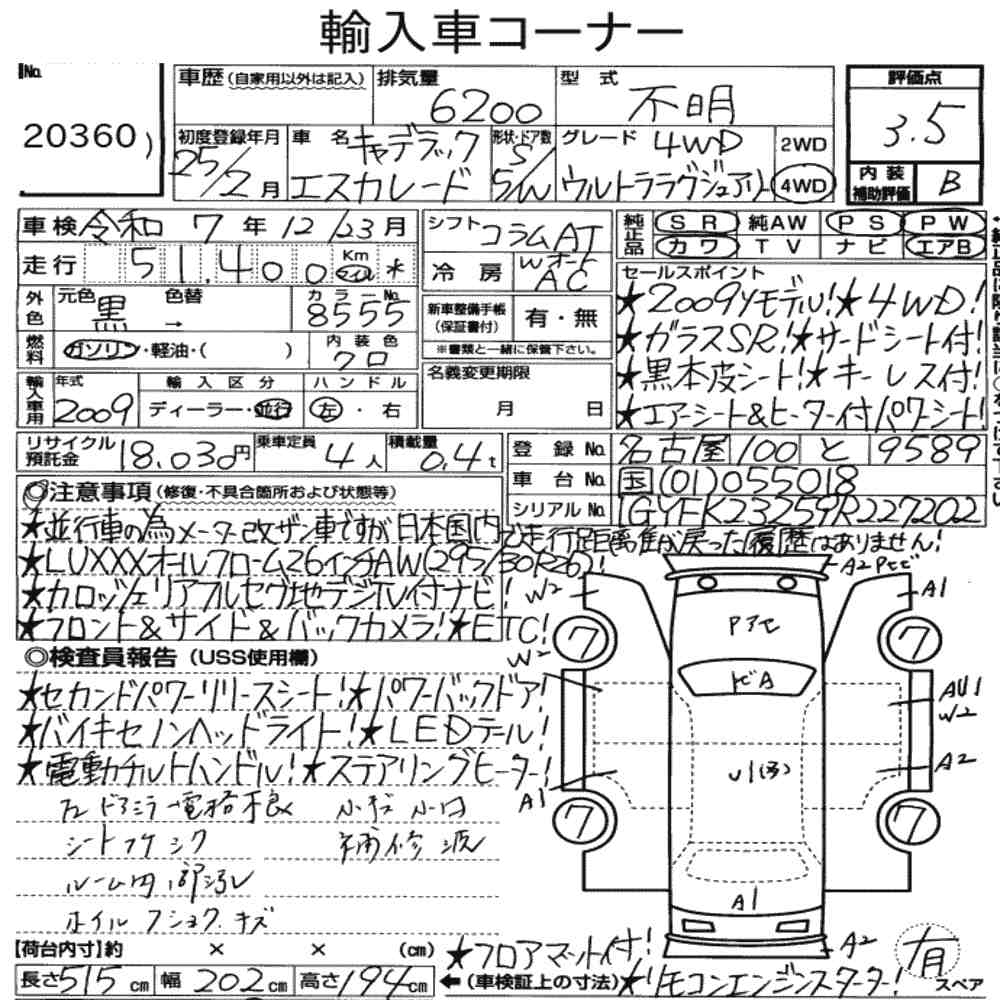 輸入車コーナー
No. 20360)
車歴(自家用以外は記入) 排気量 6200 型式 不明 評価点 3.5
初度登録年月 25/2月 車名 キャデラック エスカレード 形状・ドア数 S/5W グレード 4WD ウルトララグジュアリー 2WD 4WD 内装補助評価 B
車検 令和 7年 12/23月 シフト コラムAT 純正品 SR 純AW PS PW
走行 51,400 Km マイル * 冷房 Wオート AC カワ TV ナビ エアB
外色 元色 黒 → 色替 カラーNo. 8555 新車整備手帳(保証書付) 有・無
※書類と一緒に保管下さい。
燃料 ガソリン・軽油・( ) 内装色 クロ
輸入車用 年式 2009 輸入区分 ディーラー・並行 ハンドル 左・右 名義変更期限 月 日
セールスポイント
★2009yモデル!★4WD!
★ガラスSR!★サードシート付!
★黒本皮シート!★キーレス付!
★エアーシート&ヒーター付パワーシート!
リサイクル預託金 18,030円 乗車定員 4人 積載量 0.4t
登録No. 名古屋 100 と 9589
車台No. 国(01)055018
シリアルNo. 1GYFK23259R227202
◎注意事項(修復・不具合箇所および状態等)
★並行車の為メーター改ザン車ですが日本国内で走行距離計が戻った履歴はありません!
★LUXXXオールクローム26インチAW(295/30R26)!
★カロッツェリアフルセグ地デジTV付ナビ!
★フロント&サイド&バックカメラ!★ETC!
◎検査員報告(USS使用欄)
★セカンドパワーリリースシート!★パワーバックドア!
★バイキセノンヘッドライト!★LEDテール!
★電動チルトハンドル!★ステアリングヒーター!
左ドアミラー電格不良 小キズ小凹
シートコゲ シワ 補修波
ルーム内部汚レ
ホイル フショク.キズ
A2 Pセビ
W2 A1
7 7
Pアセ
W2 ビA AU1 W2
A1 U1(多) A2
7 7
A1
A2
有 スペア
【荷台内寸】約 × × (cm)
★フロアマット付!
長さ515cm 幅202cm 高さ194cm ←(車検証上の寸法) ★リモコンエンジンスターター!